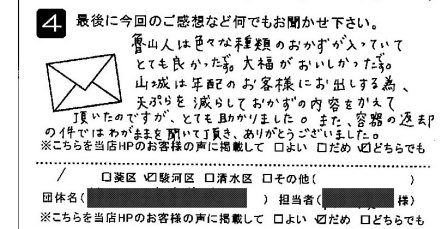 4 最後に今回のご感想など何でもお聞かせ下さい。
魯山人は色々な種類のおかずが入っていて
とても良かったです。大福がおいしかったです。
山城は年配のお客様にお出しする為、
天ぷらを減らしておかずの内容をかえて
頂いたのですが、とても助かりました。また、容器の返却
の件ではわがままを聞いて頂き、ありがとうございました。
※こちらを当店HPのお客様の声に掲載して □よい □だめ ☑どちらでも
/ □葵区 ☑駿河区 □清水区 □その他( )
団体名( ) 担当者( 様)
※こちらを当店HPのお客様の声に掲載して □よい ☑だめ □どちらでも